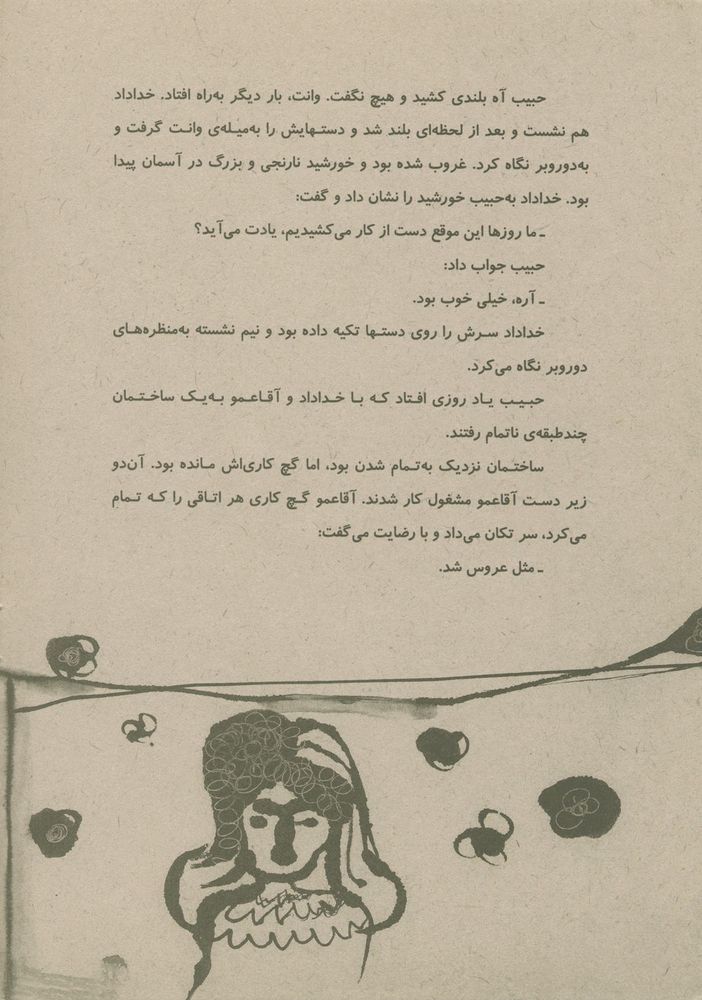 حبیب آه بلندی کشید و هیچ نگفت. وانت، بار دیگر به‌راه افتاد. خداداد
هم نشست و بعد از لحظه‌ای بلند شد و دستهایش را به‌میله‌ی وانت گرفت و
به‌دوروبر نگاه کرد. غروب شده بود و خورشید نارنجی و بزرگ در آسمان پیدا
بود. خداداد به‌حبیب خورشید را نشان داد و گفت:
ـ ما روزها این موقع دست از کار می‌کشیدیم، یادت می‌آید؟
حبیب جواب داد:
ـ آره، خیلی خوب بود.
خداداد سرش را روی دستها تکیه داده بود و نیم نشسته به‌منظره‌های
دوروبر نگاه می‌کرد.
حبیب یاد روزی افتاد که با خداداد و آقاعمو به‌یک ساختمان
چندطبقه‌ی ناتمام رفتند.
ساختمان نزدیک به‌تمام شدن بود، اما گچ کاری‌اش مانده بود. آن‌دو
زیر دست آقاعمو مشغول کار شدند. آقاعمو گچ کاری هر اتاقی را که تمام
می‌کرد، سر تکان می‌داد و با رضایت می‌گفت:
ـ مثل عروس شد.